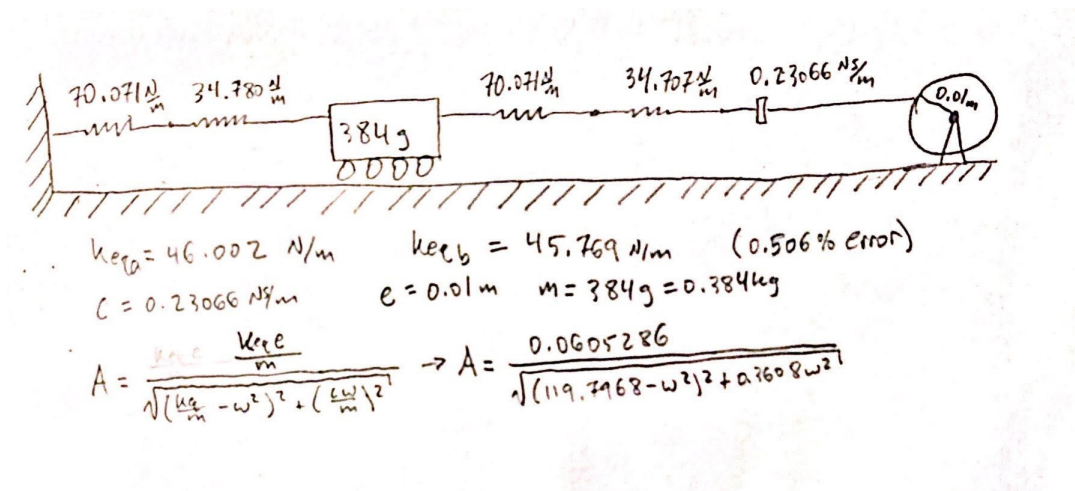 70.071 N/m 34.780 N/m 70.071 N/m 34.707 N/m 0.23066 NS/m 0.01m
384g
keqa = 46.002 N/m keqb = 45.769 N/m (0.506% error)
C = 0.23066 NS/m e = 0.01m m = 384g = 0.384kg
A = (keq e / m) / √((kq/m - ω²)² + (cω/m)²) → A = 0.0605286 / √((119.7968 - ω²)² + 0.3608ω²)